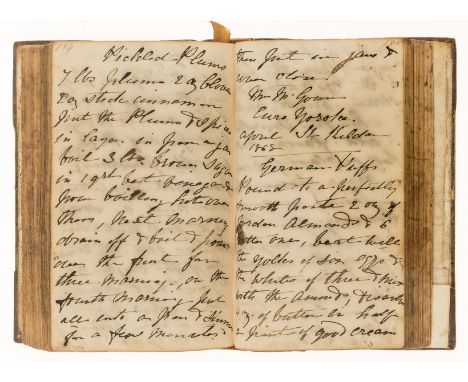 184
Pickled Plums
7 lbs plums 2 oz cloves
2 oz stick cinnamon
Put the Plums & Spice
in layers in from a jar
boil 3 lbs brown Sugar
in 1 qrt best vinegar &
pour boiling hot over
them, next morning
strain off & boil & pour
over the fruit for
three mornings, on the
fourth morning put
all into a pan & simmer
for a few minutes
then put in jars &
cover close
Mrs McGown
Euro Yoroke
April St Kilda
1868
German Puffs
Pound to a perfectly
smooth paste 2 oz of
Jordan Almonds & 6
bitter ones, beat well
the yolks of six eggs &
the whites of three & mix
with the Almonds, dissolve
oz of butter in half
a pint of good cream